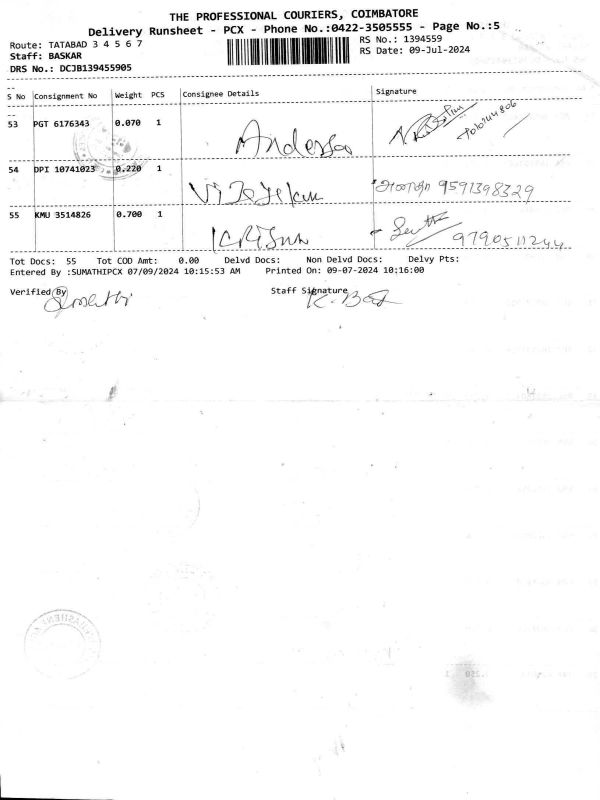 THE PROFESSIONAL COURIERS, COIMBATORE
Delivery Runsheet - PCX - Phone No.:0422-3505555 - Page No.:5
Route: TATABAD 3 4 5 6 7
RS No.: 1394559
Staff: BASKAR
RS Date: 09-Jul-2024
DRS No.: DCJB139455905
S No Consignment No Weight PCS Consignee Details Signature
53 PGT 6176343 0.070 1
54 DPI 10741023 0.220 1 9591398329
55 KMU 3514826 0.700 1 9790511244
Tot Docs: 55 Tot COD Amt: 0.00 Delvd Docs: Non Delvd Docs: Delvy Pts:
Entered By :SUMATHIPCX 07/09/2024 10:15:53 AM Printed On: 09-07-2024 10:16:00
Verified By Staff Signature